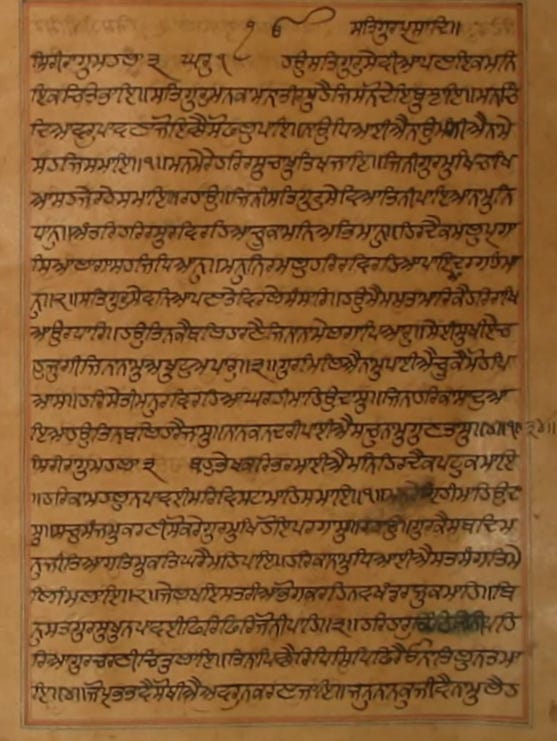 ੧ੴ ਸਤਿਗੁਰਪ੍ਰਸਾਦਿ॥
ਸਿਰੀਰਾਗੁਮਹਲਾ ੩ ਘਰੁ ੧ ਹਉਸਤਿਗੁਰੁਸੇਵੀਆਪਣਾਇਕਮਨਿ
ਇਕਚਿਤਿਭਾਇ॥ਸਤਿਗੁਰੁਮਨਕਾਮਨਾਤੀਰਥੁਹੈਜਿਸਨੋਦੇਇਬੁਝਾਇ॥ਮਨਚਿੰ
ਦਿਆਵਰੁਪਾਵਣਾਜੋਇਛੈਸੋਫਲੁਪਾਇ॥ਨਾਉਧਿਆਈਐਨਾਉਮੰਗੀਐਨਾਮੇ
ਸਹਜਿਸਮਾਇ॥੧॥ਮਨਮੇਰੇਹਰਿਰਸੁਚਾਖੁਤਿਖਜਾਇ॥ਜਿਨੀਗੁਰਮੁਖਿਚਾਖਿ
ਆਸਹਜੇਰਹੇਸਮਾਇ॥ਰਹਾਉ॥ਜਿਨੀਸਤਿਗੁਰੁਸੇਵਿਆਤਿਨੀਪਾਇਆਨਾਮੁਨਿ
ਧਾਨੁ॥ਅੰਤਰਿਹਰਿਰਸੁਰਵਿਰਹਿਆਚੂਕਾਮਨਿਅਭਿਮਾਨੁ॥ਹਿਰਦੈਕਮਲੁਪ੍ਰਗਾ
ਸਿਆਲਾਗਾਸਹਜਿਧਿਆਨੁ॥ਮਨੁਨਿਰਮਲੁਹਰਿਰਵਿਰਹਿਆਪਾਇਆਦਰਗਹਿਮਾ
ਨੁ॥੨॥ਸਤਿਗੁਰੁਸੇਵਨਿਆਪਣਾਤੇਵਿਰਲੇਸੰਸਾਰਿ॥ਹਉਮੈਮਮਤਾਮਾਰਿਕੈਹਰਿਰਾਖਿ
ਆਉਰਧਾਰਿ॥ਹਉਤਿਨਕੈਬਲਿਹਾਰਣੈਜਿਨਾਨਾਮੇਲਗਾਪਿਆਰੁ॥ਸੇਈਸੁਖੀਏਚ
ਹੁਜੁਗੀਜਿਨਾਨਾਮੁਅਖੁਟੁਅਪਾਰੁ॥੩॥ਗੁਰਮਿਲਿਐਨਾਮੁਪਾਈਐਚੂਕੈਮੋਹਪਿ
ਆਸ॥ਹਰਿਸੇਤੀਮਨੁਰਵਿਰਹਿਆਘਰਹੀਮਾਹਿਉਦਾਸੁ॥ਜਿਨਾਹਰਿਕਾਸਾਦੁਆ
ਇਆਹਉਤਿਨਬਲਿਹਾਰੈਜਾਸੁ॥ਨਾਨਕਨਦਰੀਪਾਈਐਸਚੁਨਾਮੁਗੁਣਤਾਸੁ॥੪॥੧॥
ਸਿਰੀਰਾਗੁਮਹਲਾ ੩ ਬਹੁਭੇਖਕਰਿਭਰਮਾਈਐਮਨਿਹਿਰਦੈਕਪਟੁਕਮਾਇ
॥ਹਰਿਕਾਮਹਲੁਨਪਾਵਈਮਰਿਵਿਸਟਾਮਾਹਿਸਮਾਇ॥੧॥ਮਨਰੇਗ੍ਰਿਹਹੀਮਾਹਿਉਦਾ
ਸੁ॥ਸਚੁਸੰਜਮੁਕਰਣੀਸੋਕਰੇਗੁਰਮੁਖਿਹੋਇਪਰਗਾਸੁ॥ਰਹਾਉ॥ਗੁਰਕੈਸਬਦਿਮ
ਨੁਜੀਤਿਆਗਤਿਮੁਕਤਿਘਰੈਮਹਿਪਾਇ॥ਹਰਿਕਾਨਾਮੁਧਿਆਈਐਸਤਸੰਗਤਿਮੇ
ਲਿਮਿਲਾਇ॥੨॥ਜੇਲਖਇਸਤਰੀਆਭੋਗਕਰਹਿਨਵਖੰਡਰਾਜੁਕਮਾਹਿ॥ਬਿ
ਨੁਸਤਗੁਰਸੁਖੁਨਪਾਵਈਫਿਰਿਫਿਰਿਜੋਨੀਪਾਹਿ॥੩॥ਹਰਿਹਾਰੁਕੰਠਿਜਿਨੀਪਹਿ
ਰਿਆਗੁਰਚਰਣੀਚਿਤੁਲਾਇ॥ਤਿਨਾਪਿਛੈਰਿਧਿਸਿਧਿਫਿਰੈਓਨਾਤਿਲੁਨਤਮਾ
ਇ॥੪॥ਜੋਪ੍ਰਭਭਾਵੈਸੋਥੀਐਅਵਰੁਨਕਰਣਾਜਾਇ॥ਜਨੁਨਾਨਕੁਜੀਵੈਨਾਮੁਲੈਹ